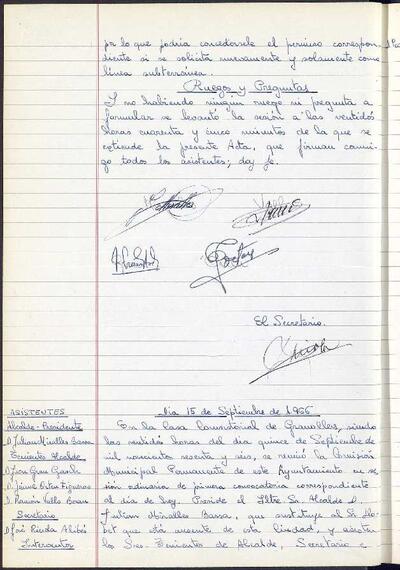 por lo que podría concedersele el permiso correspon-
diente si se solicita nuevamente y solamente como
línea subterránea.
Ruegos y Preguntas
Y no habiendo ningún ruego ni pregunta a
formular se levantó la sesión a las veintidós
horas cuarenta y cinco minutos de la que se
extiende la presente Acta, que firman conmi-
go todos los asistentes; doy fé.
El Secretario.
ASISTENTES
Alcalde-Presidente
D. Julian Miralles Bassa
Tenientes Alcalde
D. Juan Grau Garola
D. Jaime
D. Ramón Valls Bonau
Secretario
D. José Rueda Alibés
Interventor
Día 15 de Septiembre de 1966
En la Casa Consistorial de Granollers, siendo
las veintidós horas del día quince de Septiembre de
mil novecientos sesenta y seis, se reunió la Comisión
Municipal Permanente de este Ayuntamiento en se-
sión ordinaria de primera convocatoria correspondiente
al día de hoy. Preside el Iltre. Sr. Alcalde D.
Julian Miralles Bassa, que sustituye al Sr. Llo-
bet que está ausente de esta Ciudad, y asisten
los Sres. Tenientes de Alcalde, Secretario e